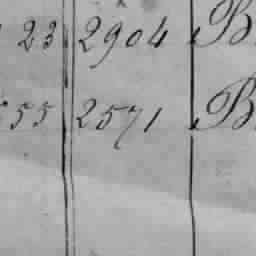 23 2904 B
55 2571 B